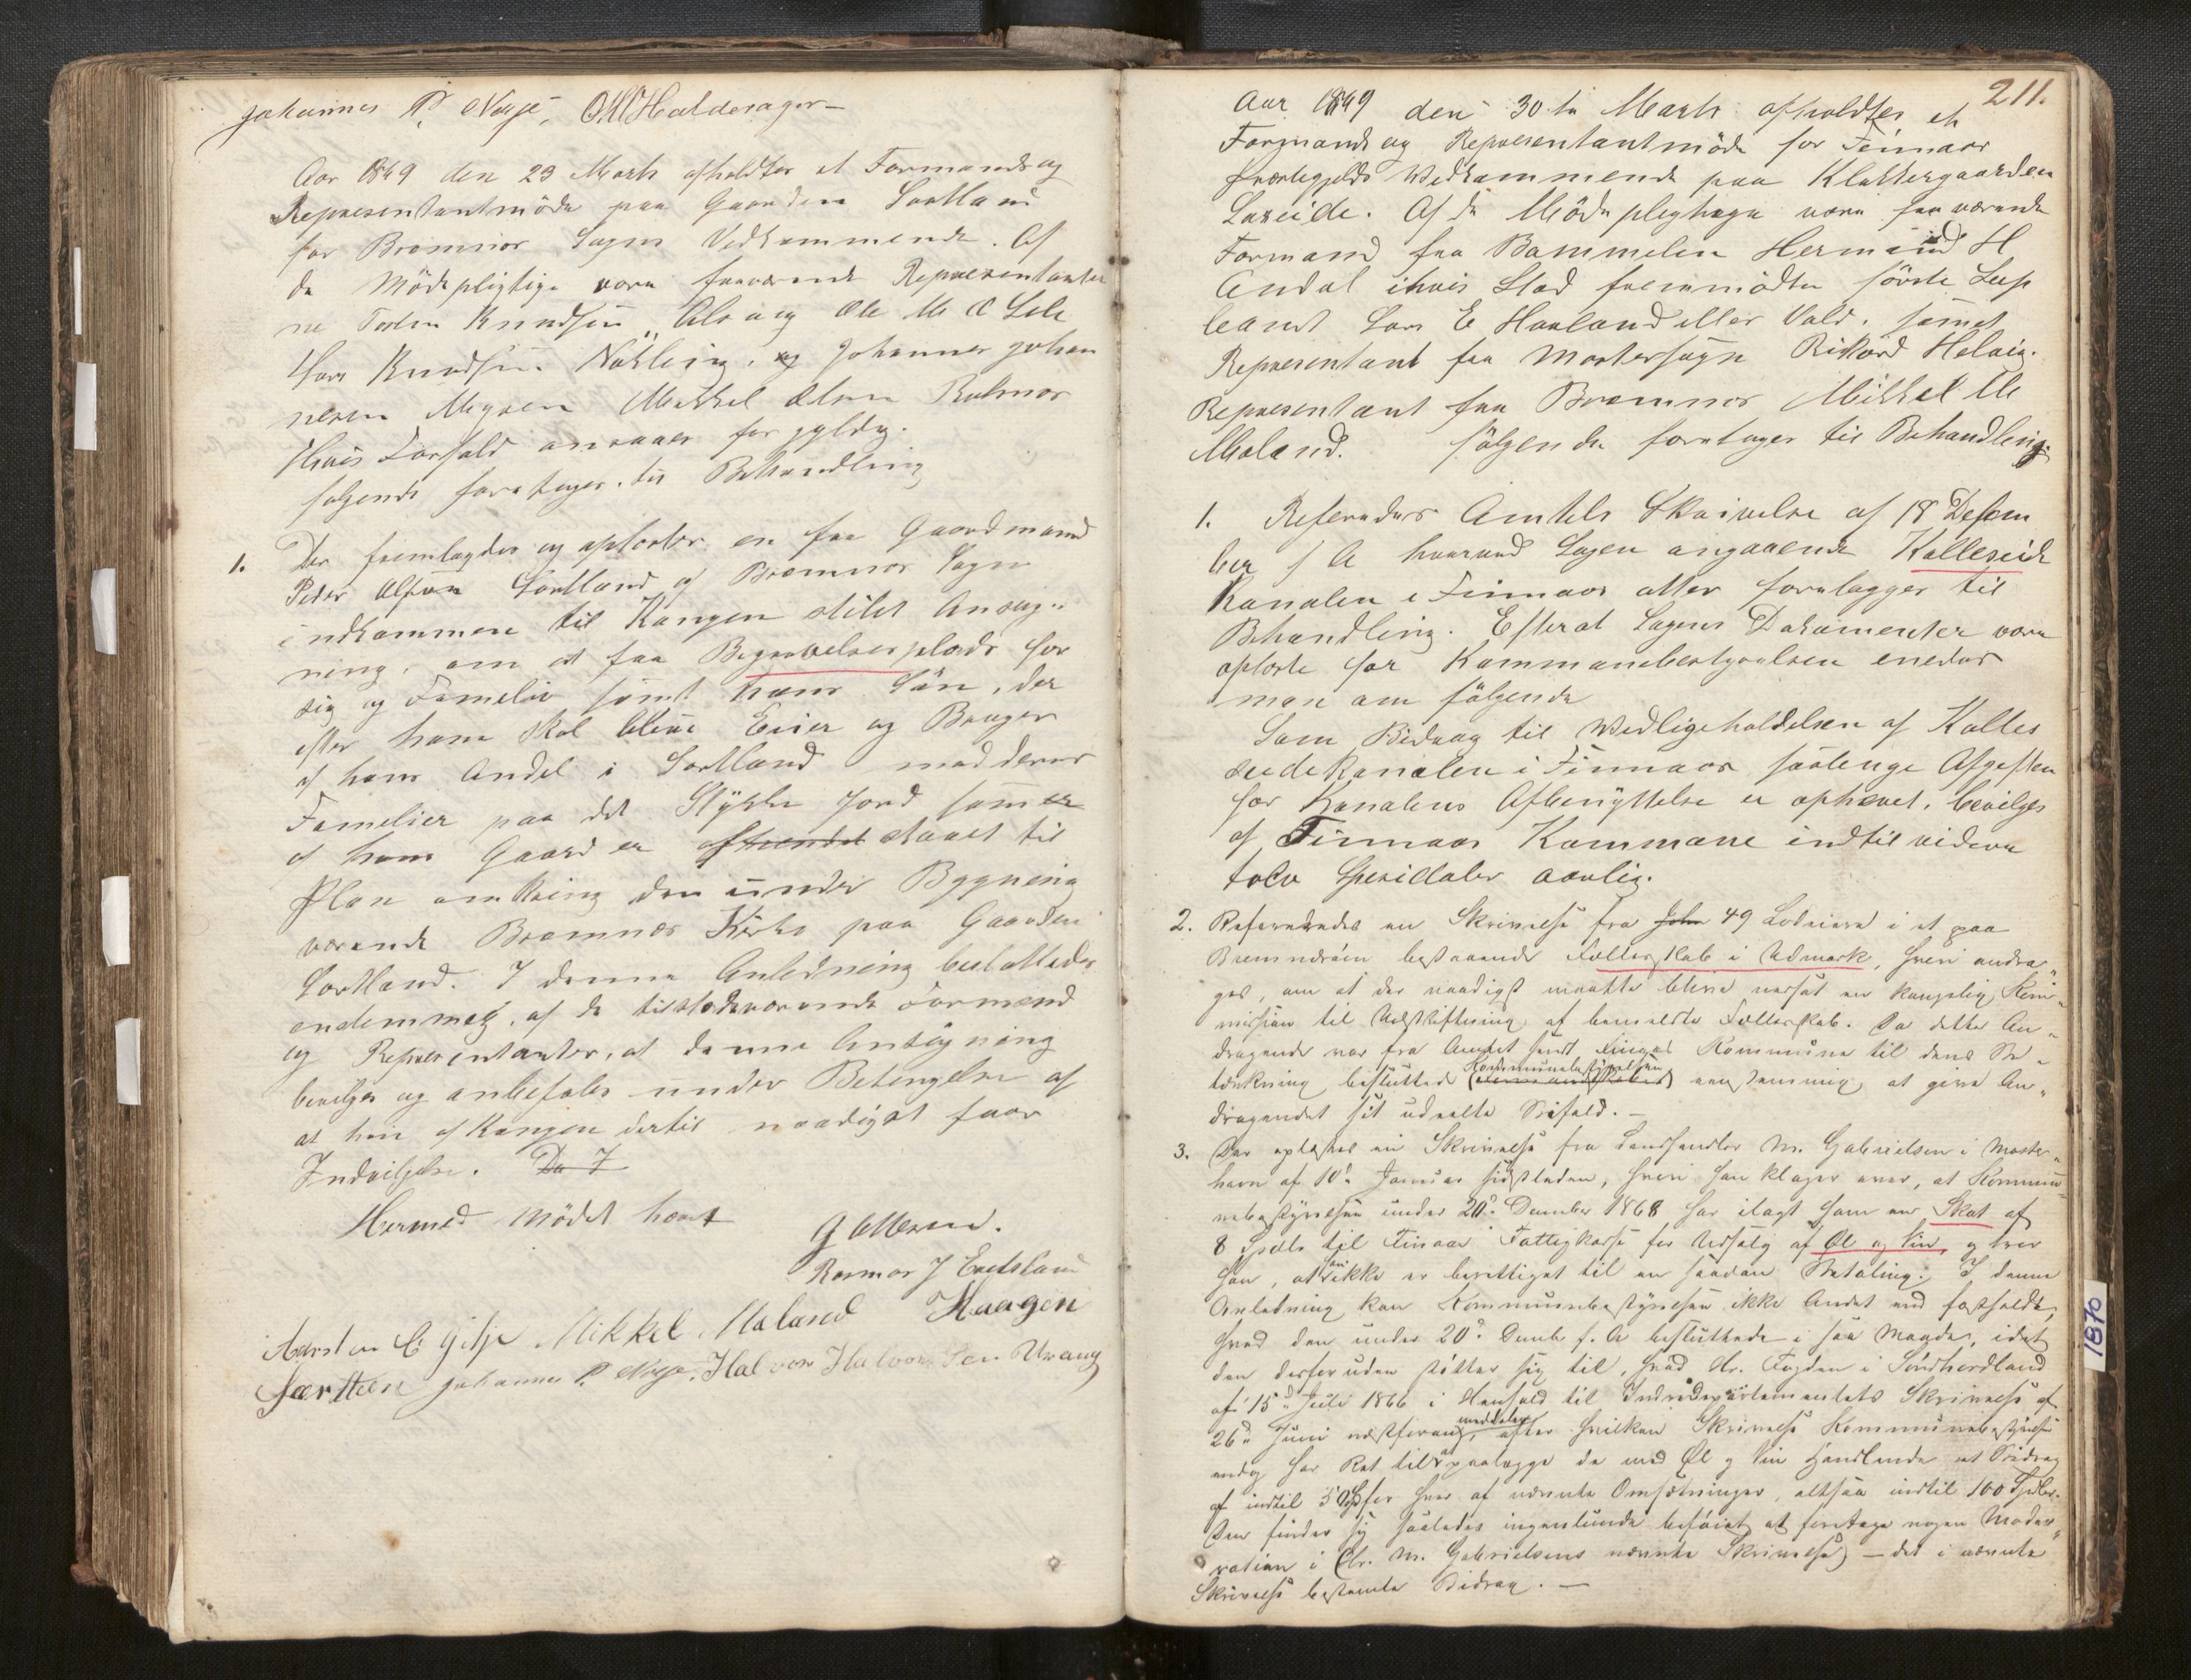 Johannes P. Nesse, O M Halderager
Aar 1869 den 23 Marts afholdtes et Formands og
Representantmöde paa Gaarden Sortland
for Bremnes Sogns Vedkommende. Af
de Mödepligtige vare fraværende Representanter
ne Torsten Knudsen, Alsvig Ole M
Knudsen Nökling, og Johannes Johan
nesen Mikkel Olsen
Hvis Forfald ansaaes for gyldig.
følgende foretages til Behandling
1. Der fremlagdes og oplæstes en fra Gaardmand
Peder Olsen Sortland af Bremnes Sogn
indkommen til Kongen stilet Ansøg-
ning, om at faa Begravelsesplads for
sig og Familie samt hans Sön, der
efter ham skal blive Eier og Bruger
af hans Andel i Sortland med deres
Familier paa det Stykke Jord som er
af hans Gaard er afhændet skaaet til
Plan omkring den under Bygning
værende Bremnes Kirke paa Gaarden
Sortland. I denne Anledning besluttedes
endstemmig, af de tilstedeværende Formænd
og Representanter, at denne Ansögning
bevilges og anbefales under Betingelse af
at hun af Kongen dertil naadigst faar
Indvilgelse. Da I
Hermed Mødet hævet
G Ottesen.
Rasmus J Eidsland
Karsten C Gilje Mikkel Mæland Haagen
Sørtteen Johannes P. Nesse. Halvor Halvorsen Urang
211.
Aar 1869 den 30te Marts afholdtes et
Formands og Representantmöde for Finnaas
Præstegjelds Wedkommende paa Klokkergaarden
Løxeide. Af de Möde pligtige vare fraværende
Formand fra Bømmelen Hermund H
Andal ihvis Sted fremmödte förste Sup
leant Lars E Hovland eller Vold. samt
Representant fra Mostersogn Rikard Helvig.
Representant fra Bremnes Mikkel M
Mæland. følgende foretages til Behandling.
1. Refereredes Amtets Skrivelse af 18 Desem
ber f A hvorved Sagen angaaende Kalleseid
Kanalen i Finnaas atter forelægges til
Behandling. Efterat Sagens Dokumenter vare
oplæste for Kommunebestyrelsen enedes
man om fölgende
Som Bidrag til Wedligeholdelsen af Kalles
eidekanalen i Finnaas saalenge Afgiften
for Kanalens Afbenyttelse er ophævet, bevilges
af Finnaas Kommune indtil videre
tolv Spesidaler aarlig.
2. Refereredes en Skrivelse fra John 49 Lodeiere i et paa
Bremnesöen bestaaende Fælleskab i Udmark, hvori andra-
ges, om at der naadigst maatte blive nedsat en kongelig Kom-
mission til Udskiftning af bemeldte Fælleskab. Da dette An-
dragende var fra Amtet sendt Finaas Kommune til dens Be-
tænkning besluttede Kommunebestyrelsen eenstemmig, at give An-
dragendet sit udeelte Bifald. —
3. Der oplæstes en Skrivelse fra Landhandler M. Gabrielsen i Moster-
havn af 10de Januar sidstleden, hvori han klager over, at Kommu-
nebestyrelsen under 20de December 1868 har ilagt ham en Skat af
8 Spdlr til Finaas Fattigkasse for Udsalg af Øl og Vin, og tror
han, at den ikke er berettiget til en saadan Betaling. I denne
Anledning kan Kommunebestyrelsen ikke Andet end fastholde,
hvad den under 20de Decmb f. A besluttede i saa Maade, idet
den desforuden støtter sig til, hvad Hr. Fogden i Söndhordland
af 15de Juli 1866 i Henhold til Indredepartementets Skrivelse af
26de Juni næstforan, meddeler efter hvilken Skrivelse Kommunebestyrelsen
endog har Ret til at paalægge de med Øl og Vin Handlende et Bidrag
af indtil 50 Spd for hver af nævnte Omsætninger, altsaa indtil 100 Spdlr.
Den finder sig saaledes ingenlunde beföiet at foretage nogen Mode-
ration i (Hr. M. Gabrielsens nævnte Skrivelse) — det i nævnte
Skrivelse bestemte Bidrag. —
1870